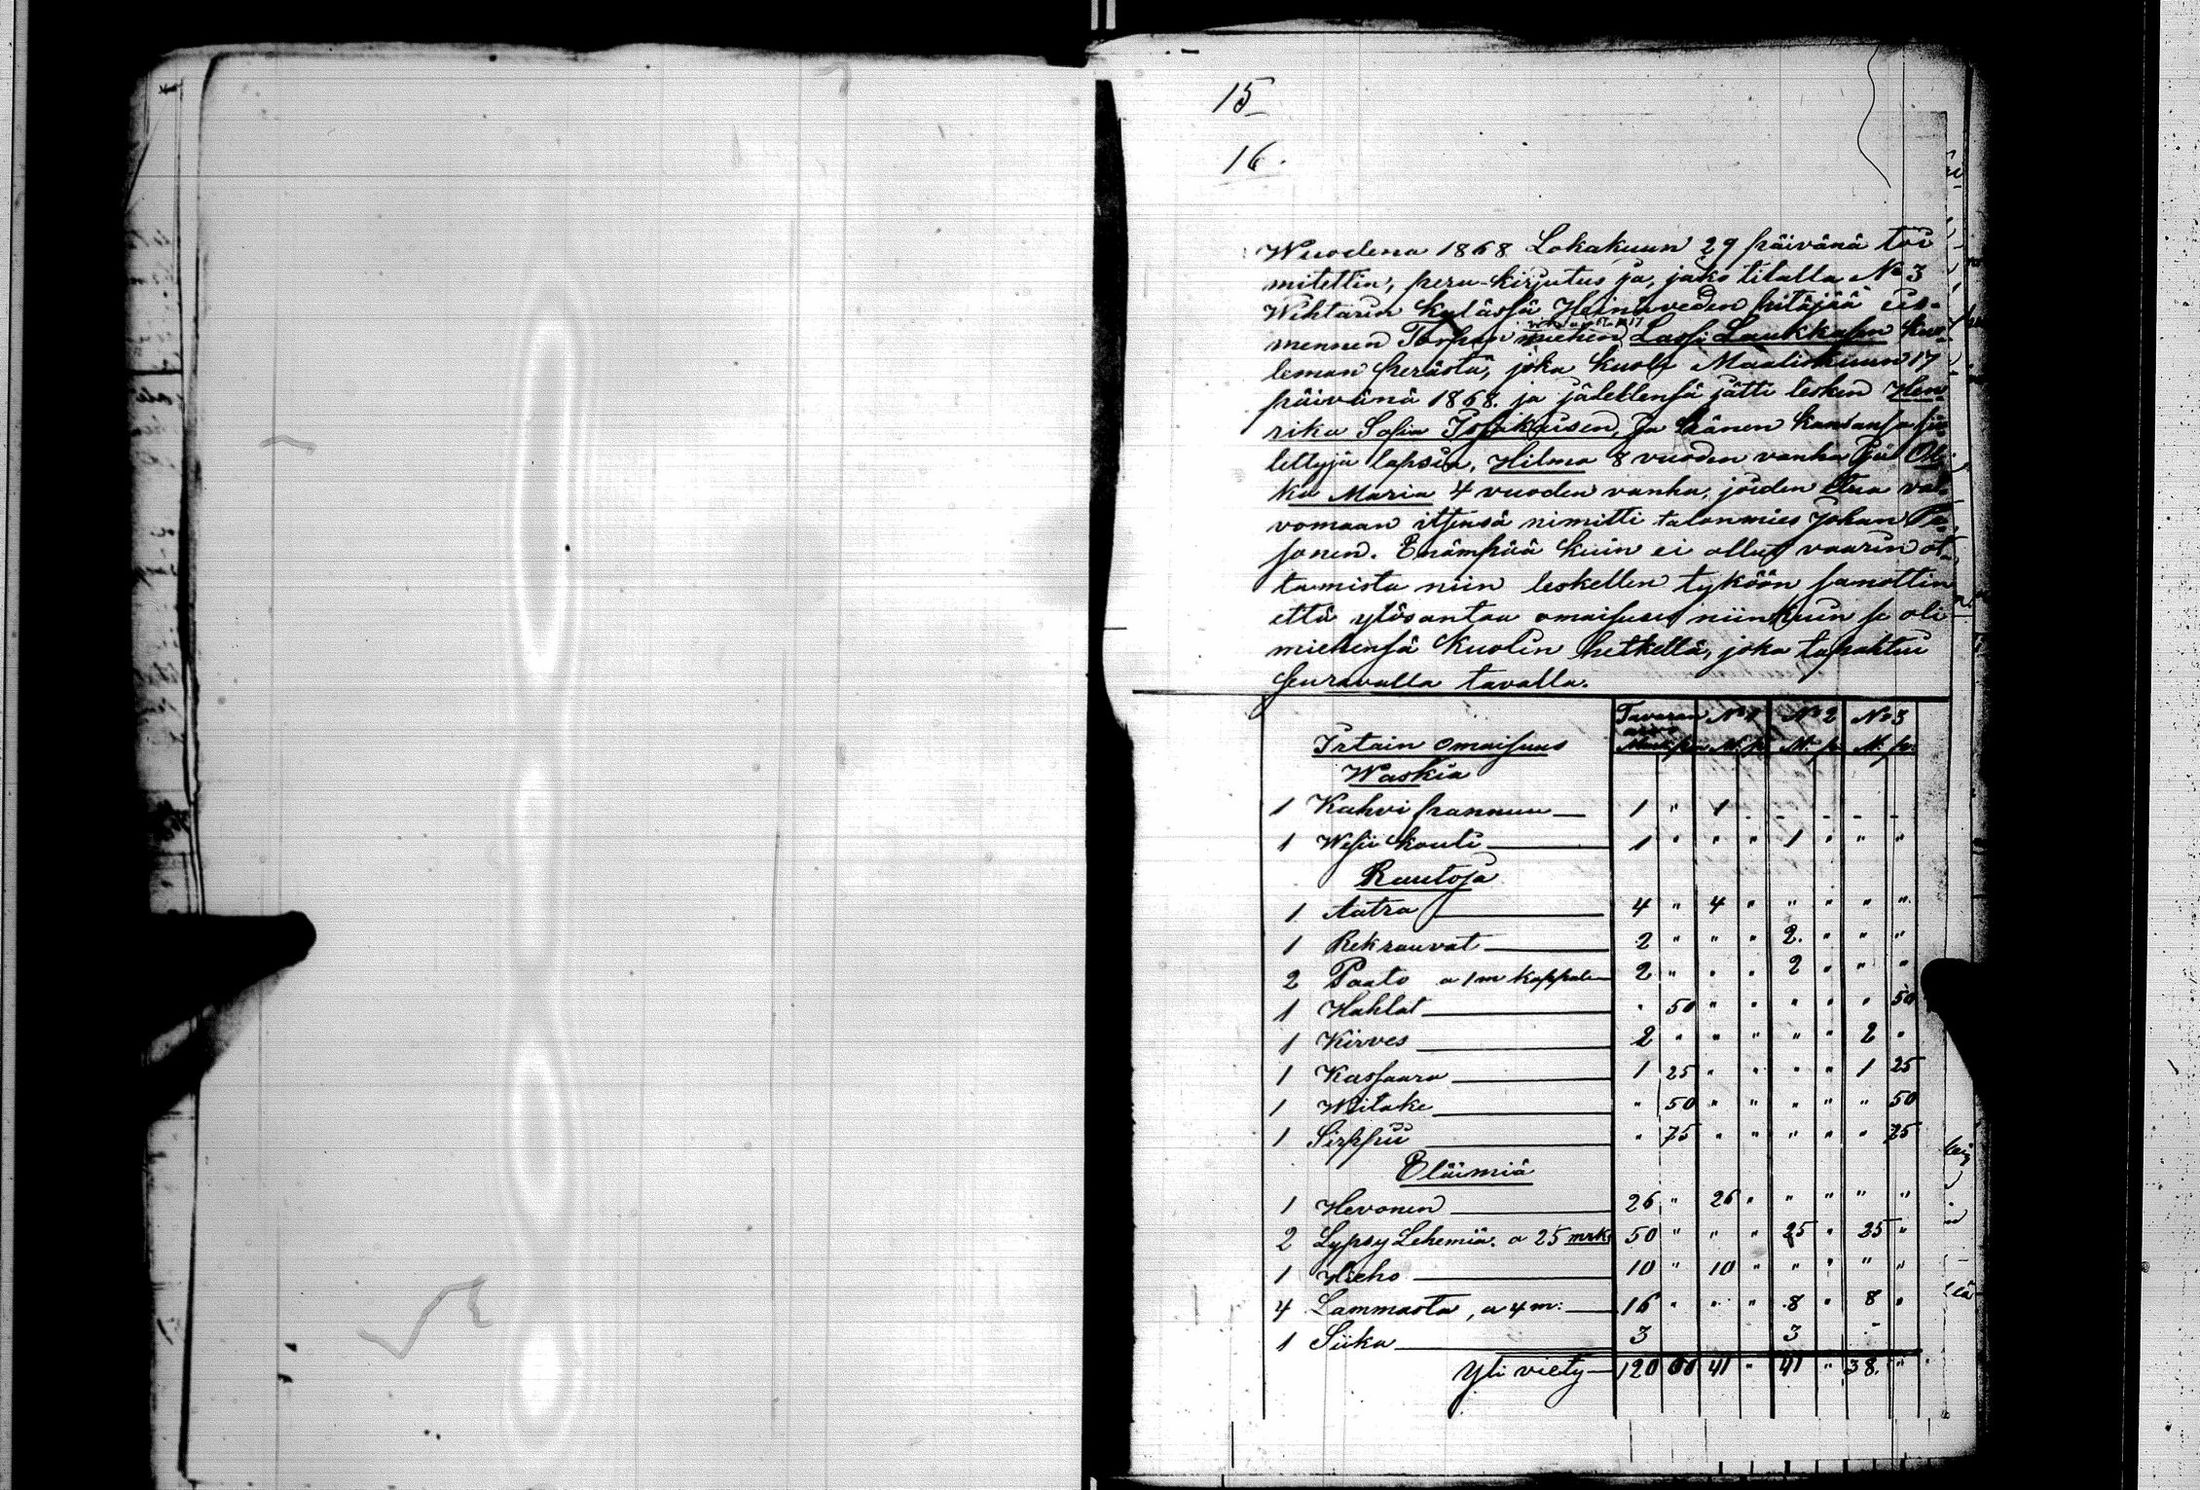 15
16.
Wuodena 1868 Lokakuun 29 päivänä toi
mitettin, peru-kirjutus ja, jako tilalla No 3
Wihtarin kylässä Heinäveden pitäjää en-
mennen Torpan miehen Lassi Laukkasen kuo-
leman perästä, joka kuoli Maaliskuun 17
päivänä 1868. ja jälellensä jätti lesken Hen-
rika Sofia Pesikaisen, ja hänen kansansa sii-
tettyjä lapsia, Hilma 8 vuoden vanha ja
ka Maria 4 vuoden vanha, joiden etua val-
vomaan itsensä nimitti talonmies Johan
sonen. Enämpää kuin ei ollut vaarin ot-
tamista niin leskellen tyköön sanottin
että ylösantaa omaisuus niinkuin se oli
miehensä kuolin hetkellä, joka tapahtui
seuravalla tavalla.
Irtain omaisuus Tavaran arvo No 1 No 2 No 3
Mark pen M. p M. p. M. p.
Waskia
1 Kahvi pannuu 1 " 1 - - - - -
1 Wesi kouli 1 " " " 1 " " "
Rautoja
1 Aatra 4 " 4 " " " " "
1 Rekrauvat 2 " " " 2. " " "
2 Paato a 1 m kappale 2 " " " 2 " " "
1 Kahlat " 50 " " " " " 50
1 Kirves 2 " " " " " 2 "
1 Kassaara 1 25 " " " " 1 25
1 Witake " 50 " " " " " 50
1 Sirppii " 75 " " " " " 75
Eläimiä
1 Hevonen 26 " 26 " " " " "
2 Lypsy Lehemiä. a 25 mrk 50 " " " 25 " 25 "
1 Hieho 10 " 10 " " " " "
4 Lammasta, a 4 m: 16 " " " 8 " 8 "
1 Siika 3 3 -
Yli viety 120 00 41 " 41 " 38. "